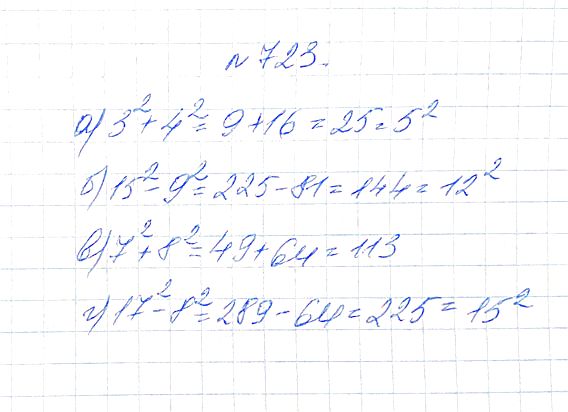 № 723.
а) 3² + 4² = 9 + 16 = 25 = 5²
б) 15² - 9² = 225 - 81 = 144 = 12²
в) 7² + 8² = 49 + 64 = 113
г) 17² - 8² = 289 - 64 = 225 = 15²